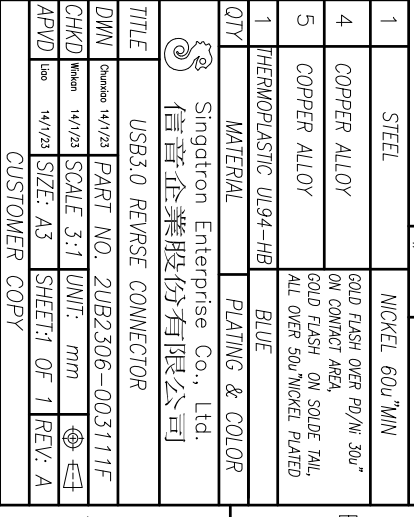 1 STEEL NICKEL 60u"MIN
4 COPPER ALLOY GOLD FLASH OVER PD/Ni 30u"
ON CONTACT AREA,
5 COPPER ALLOY GOLD FLASH ON SOLDE TAIL,
ALL OVER 50u"NICKEL PLATED
1 THERMOPLASTIC UL94-HB BLUE
QTY MATERIAL PLATING & COLOR
Singatron Enterprise Co., Ltd.
信音企業股份有限公司
TITLE USB3.0 REVRSE CONNECTOR
DWN Chunxiao 14/1/23 PART NO. 2UB2306-003111F
CHKD Winkan 14/1/23 SCALE 3:1 UNIT: mm
APVD Liao 14/1/23 SIZE: A3 SHEET:1 OF 1 REV: A
CUSTOMER COPY